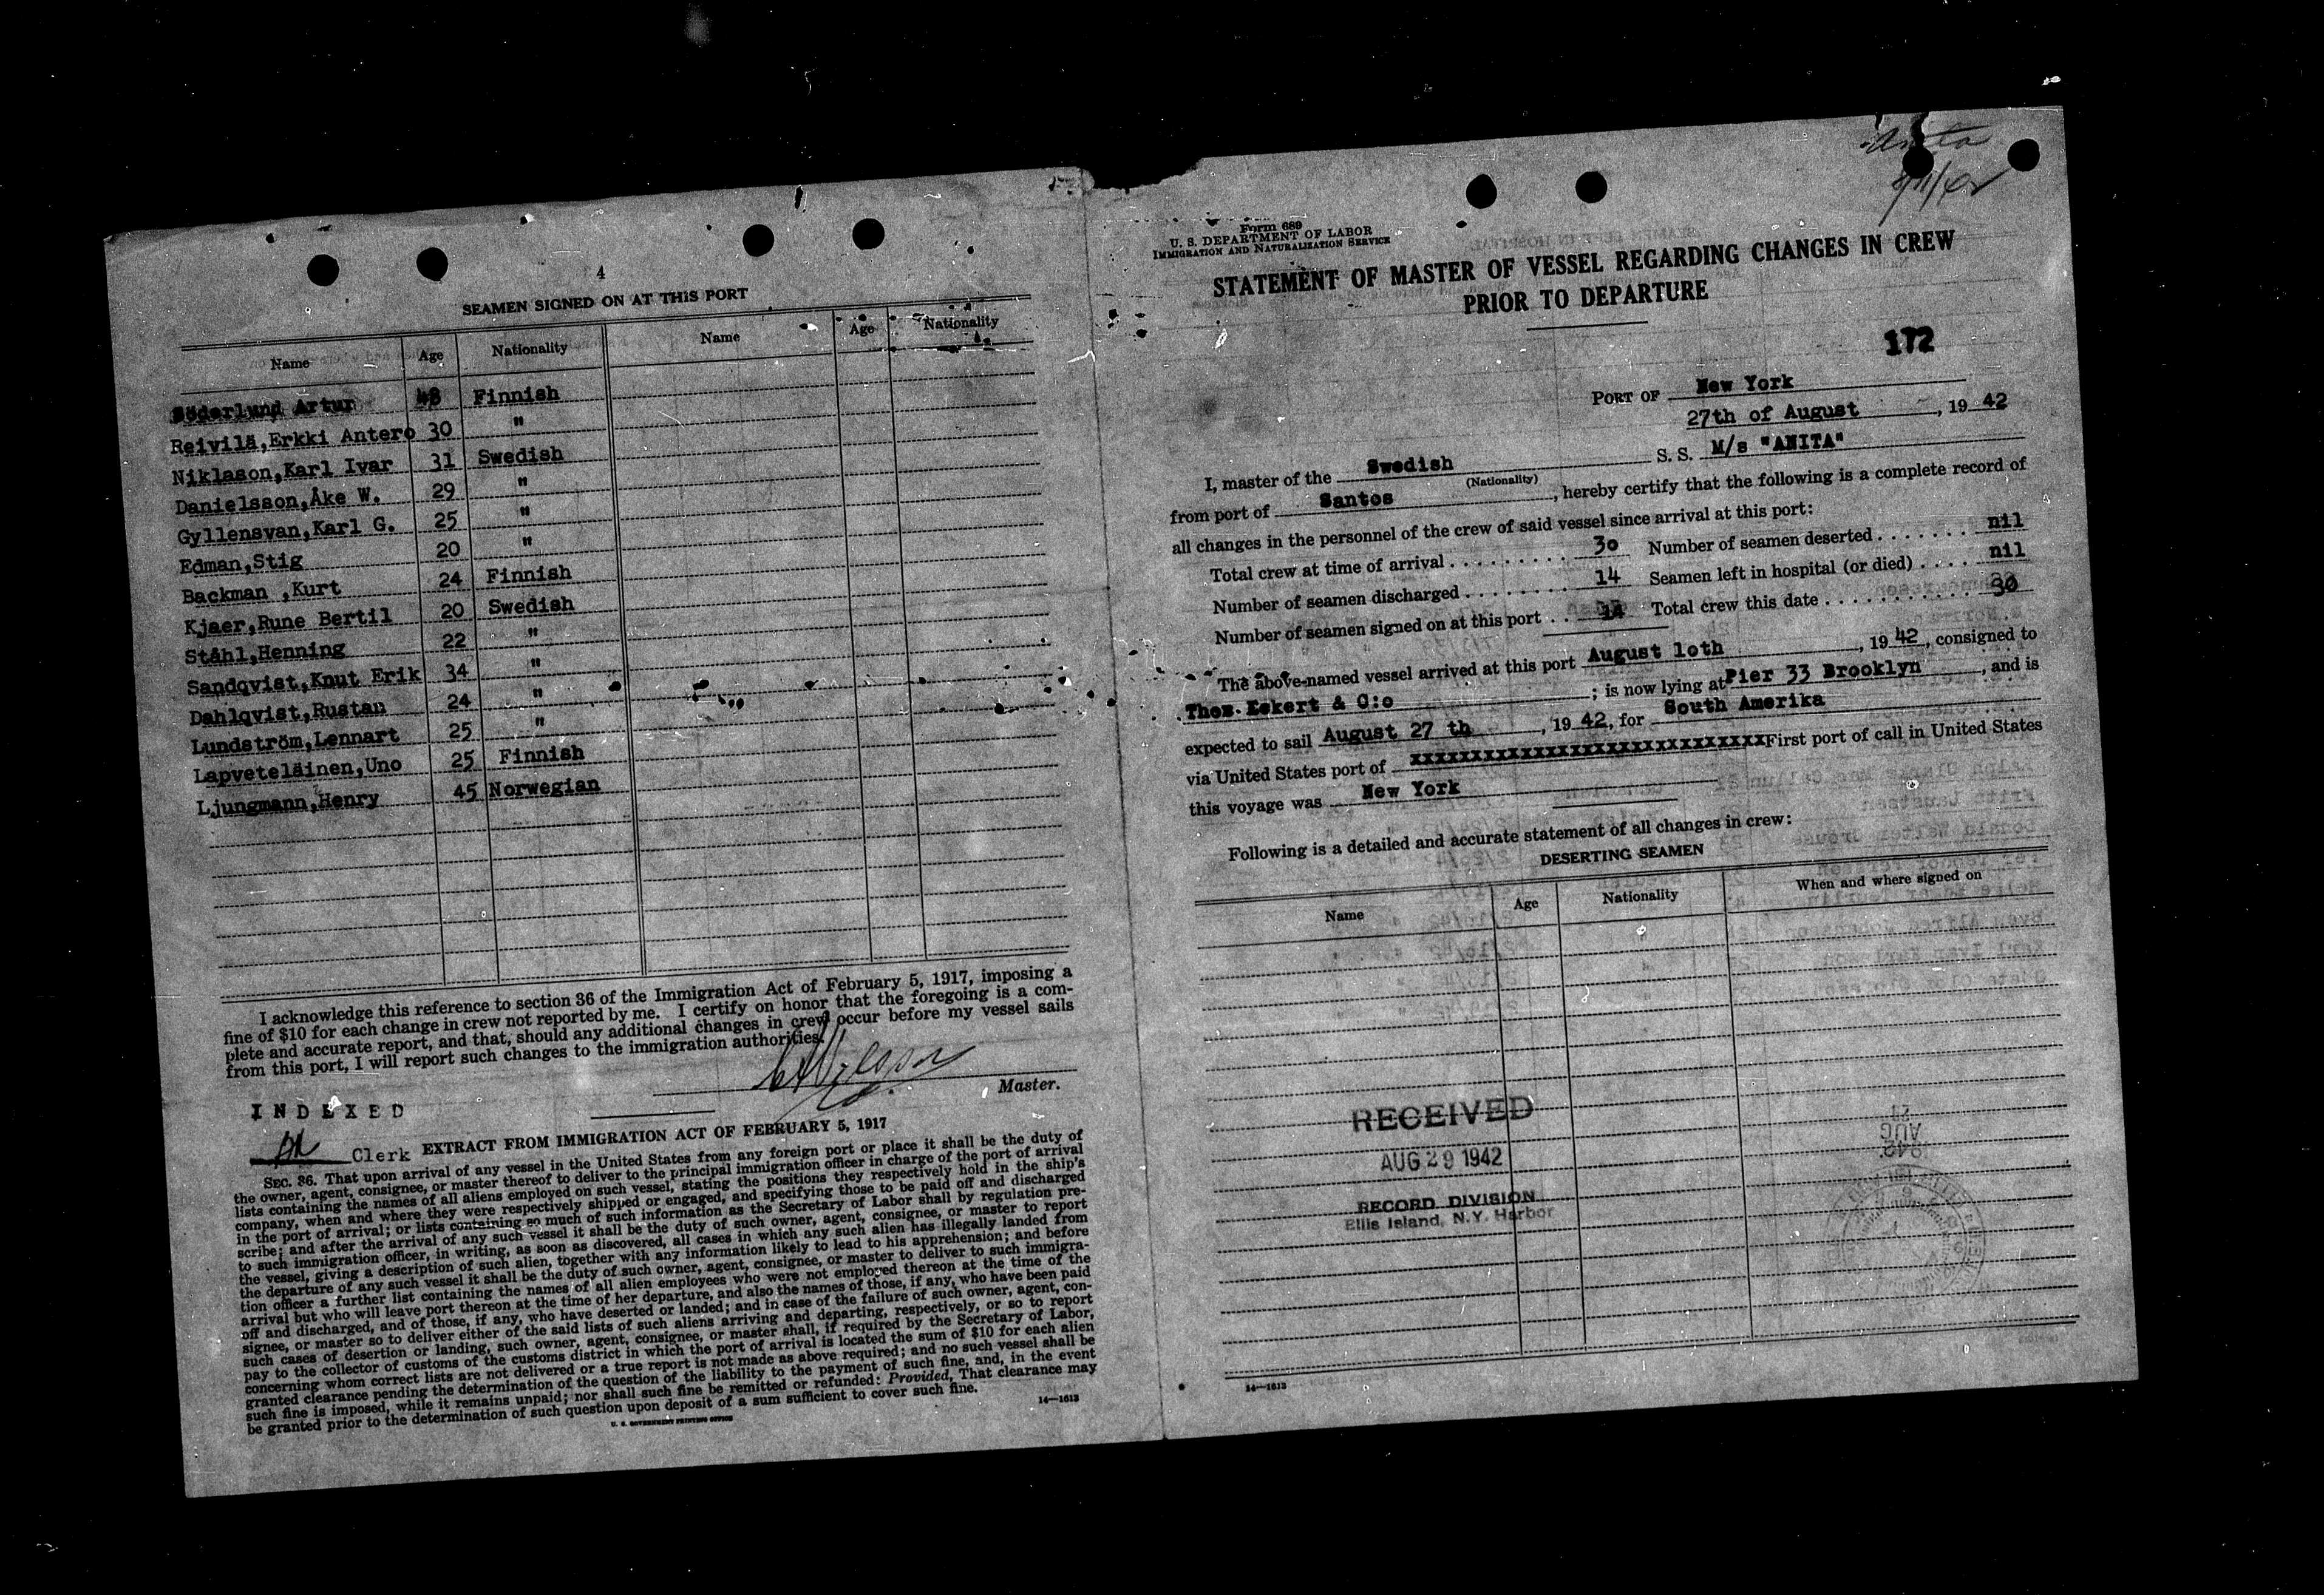 4
SEAMEN SIGNED ON AT THIS PORT
Name Age Nationality Name Age Nationality
Söderlund Artur 48 Finnish
Reivilä,Erkki Antero 30 "
Niklason,Karl Ivar 31 Swedish
Danielsson,Åke W. 29 "
Gyllensvan,Karl G. 25 "
Edman,Stig 20 "
Backman ,Kurt 24 Finnish
Kjaer,Rune Bertil 20 Swedish
Ståhl,Henning 22 "
Sandqvist,Knut Erik 34 "
Dahlqvist,Rustan 24 "
Lundström,Lennart 25 "
Lapveteläinen,Uno 25 Finnish
Ljungmann,Henry 45 Norwegian
I acknowledge this reference to section 36 of the Immigration Act of February 5, 1917, imposing a
fine of $10 for each change in crew not reported by me. I certify on honor that the foregoing is a com-
plete and accurate report, and that, should any additional changes in crew occur before my vessel sails
from this port, I will report such changes to the immigration authorities.
Master.
INDEXED
Clerk
EXTRACT FROM IMMIGRATION ACT OF FEBRUARY 5, 1917
SEC. 36. That upon arrival of any vessel in the United States from any foreign port or place it shall be the duty of
the owner, agent, consignee, or master thereof to deliver to the principal immigration officer in charge of the port of arrival
lists containing the names of all aliens employed on such vessel, stating the positions they respectively hold in the ship's
company, when and where they were respectively shipped or engaged, and specifying those to be paid off and discharged
in the port of arrival; or lists containing so much of such information as the Secretary of Labor shall by regulation pre-
scribe; and after the arrival of any such vessel it shall be the duty of such owner, agent, consignee, or master to report
to such immigration officer, in writing, as soon as discovered, all cases in which any such alien has illegally landed from
the vessel, giving a description of such alien, together with any information likely to lead to his apprehension; and before
the departure of any such vessel it shall be the duty of such owner, agent, consignee, or master to deliver to such immigra-
tion officer a further list containing the names of all alien employees who were not employed thereon at the time of the
arrival but who will leave port thereon at the time of her departure, and also the names of those, if any, who have been paid
off and discharged, and of those, if any, who have deserted or landed; and in case of the failure of such owner, agent, con-
signee, or master so to deliver either of the said lists of such aliens arriving and departing, respectively, or so to report
such cases of desertion or landing, such owner, agent, consignee, or master shall, if required by the Secretary of Labor,
pay to the collector of customs of the customs district in which the port of arrival is located the sum of $10 for each alien
concerning whom correct lists are not delivered or a true report is not made as above required; and no such vessel shall be
granted clearance pending the determination of the question of the liability to the payment of such fine, and, in the event
such fine is imposed, while it remains unpaid; nor shall such fine be remitted or refunded: Provided, That clearance may
be granted prior to the determination of such question upon deposit of a sum sufficient to cover such fine.
U. S. GOVERNMENT PRINTING OFFICE 14—1613
Anita
Form 689
U. S. DEPARTMENT OF LABOR
IMMIGRATION AND NATURALIZATION SERVICE
STATEMENT OF MASTER OF VESSEL REGARDING CHANGES IN CREW
PRIOR TO DEPARTURE
172
PORT OF New York
27th of August, 19 42
I, master of the Swedish S. S. M/s "ANITA"
(Nationality)
from port of Santos, hereby certify that the following is a complete record of
all changes in the personnel of the crew of said vessel since arrival at this port:
Total crew at time of arrival 30 Number of seamen deserted nil
Number of seamen discharged 14 Seamen left in hospital (or died) nil
Number of seamen signed on at this port 14 Total crew this date 30
The above-named vessel arrived at this port August 10th, 19 42, consigned to
Thos. Eckert & C:o; is now lying at Pier 33 Brooklyn, and is
expected to sail August 27 th, 19 42, for South Amerika
via United States port of xxxxxxxxxxxxxxxxxxxxxxxxxxxxx First port of call in United States
this voyage was New York
Following is a detailed and accurate statement of all changes in crew:
DESERTING SEAMEN
Name Age Nationality When and where signed on
RECEIVED
AUG 29 1942
RECORD DIVISION
Ellis Island, N.Y. Harbor
14—1613